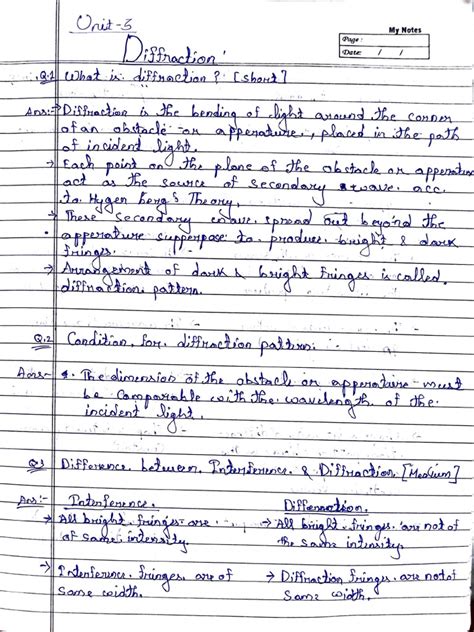 Unit-3
My Notes
Page:
Date: / /
Diffraction
Q.1 What is diffraction? [short]
Ans:→ Diffraction is the bending of light around the corner
of an obstacle or apperature, placed in the path
of incident light.
→ Each point on the plane of the obstacle or apperature
act as the source of secondary wave. acc.
to Hygen Berg's Theory.
→ These Secondary spread out beyond the
apperature supperpose to produce bright & dark
fringes.
→ Arrangement of dark & bright Fringes is called
diffraction pattern.
Q.2 Condition for diffraction pattern:
Ans- The dimension of the obstacle or apperature must
be Comparable with the wavelength of the
incident light.
Q3 Difference between Interference & Diffraction [Medium]
Ans:- Interference. Diffraction.
→ All bright fringes are → All bright fringes are not of
of same intensity. the same intensity.
→ Interference fringes are of → Diffraction fringes are not of
same width. same width.